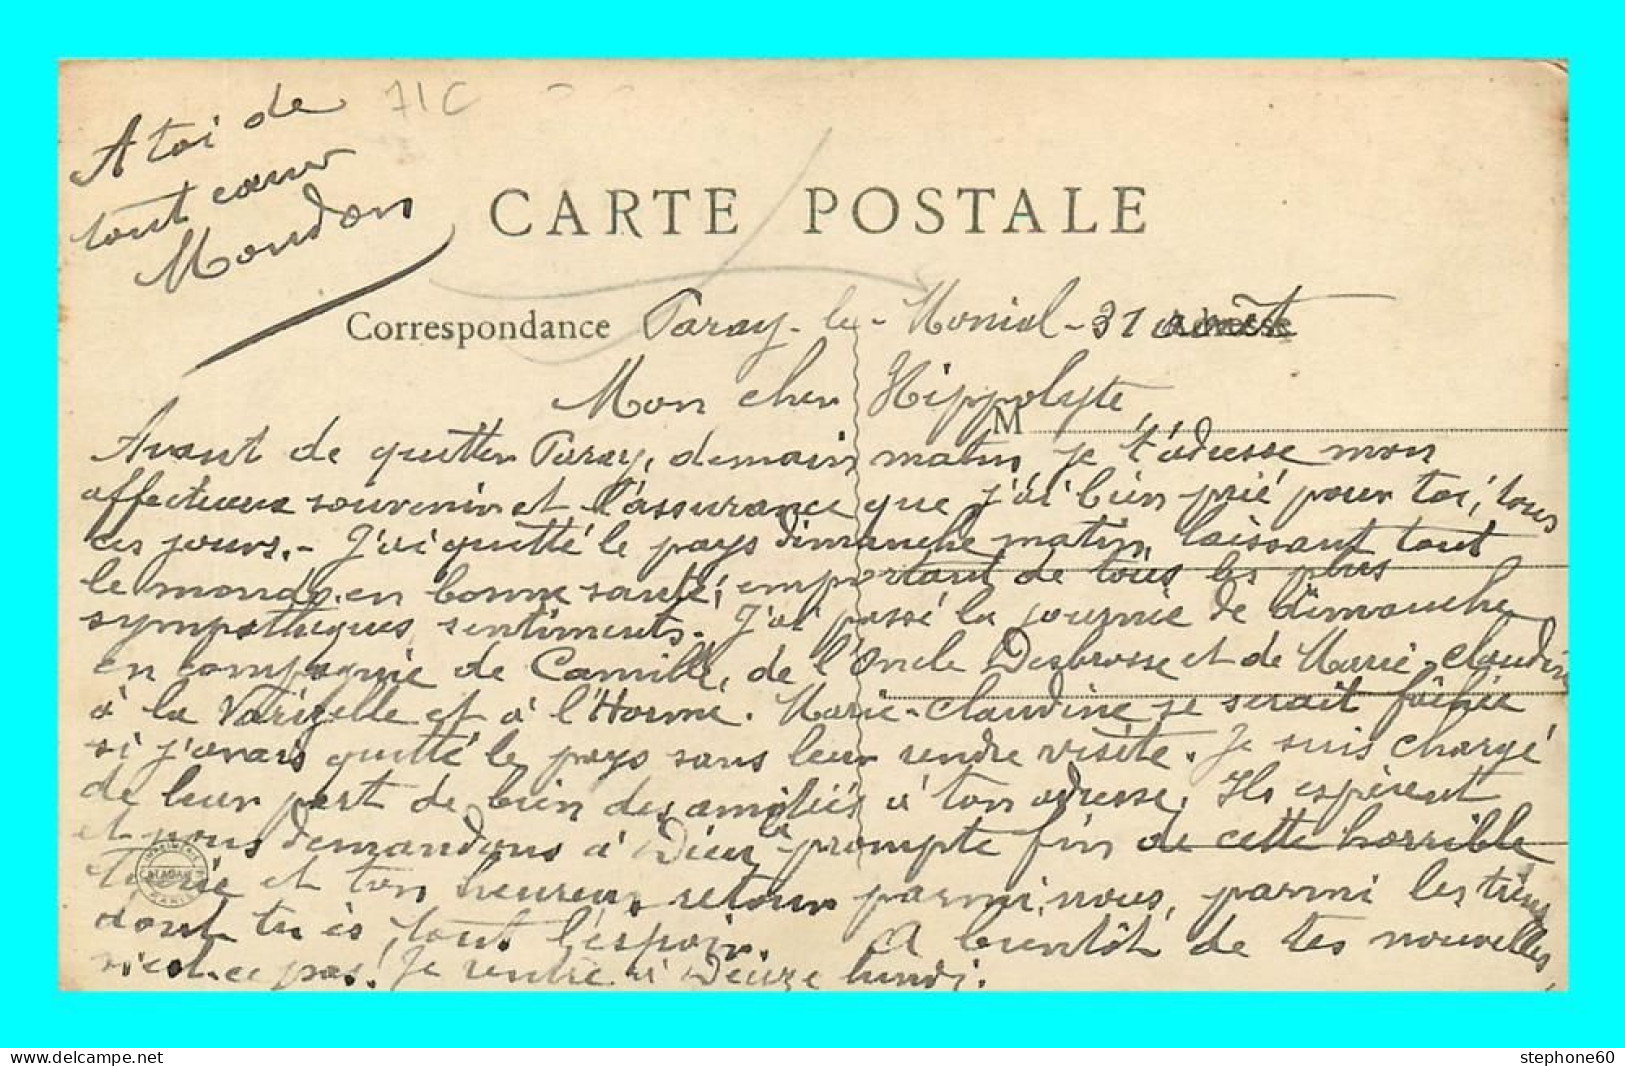 A toi de
tout cœur
Moudon
71C
CARTE POSTALE
Correspondance Paray-le-Monial-31 août
Mon cher Hippolyte,
M
Avant de quitter Paray, demain matin, je t'adresse mon
affectueux souvenir et l'assurance que j'ai bien prié pour toi, tous
ces jours.- J'ai quitté le pays dimanche matin, laissant tout
le monde en bonne santé; emportant de tous les plus
sympathiques sentiments. J'ai passé la journée de dimanche
en compagnie de Camille, de l'oncle Desbrosse et de Marie-Claudine
à la Varizelle et à l'Horme. Marie-Claudine se serait fâchée
si j'avais quitté le pays sans leur rendre visite. Je suis chargé
de leur part de bien des amitiés à ton adresse. Ils espèrent
et nous demandons à Dieu la prompte fin de cette horrible
tuerie et ton heureux retour parmi nous, parmi les tiens
dont tu es tout l'espoir. A bientôt de tes nouvelles,
n'est-ce pas! Je rentre à lundi.
www.delcampe.net
stephone60